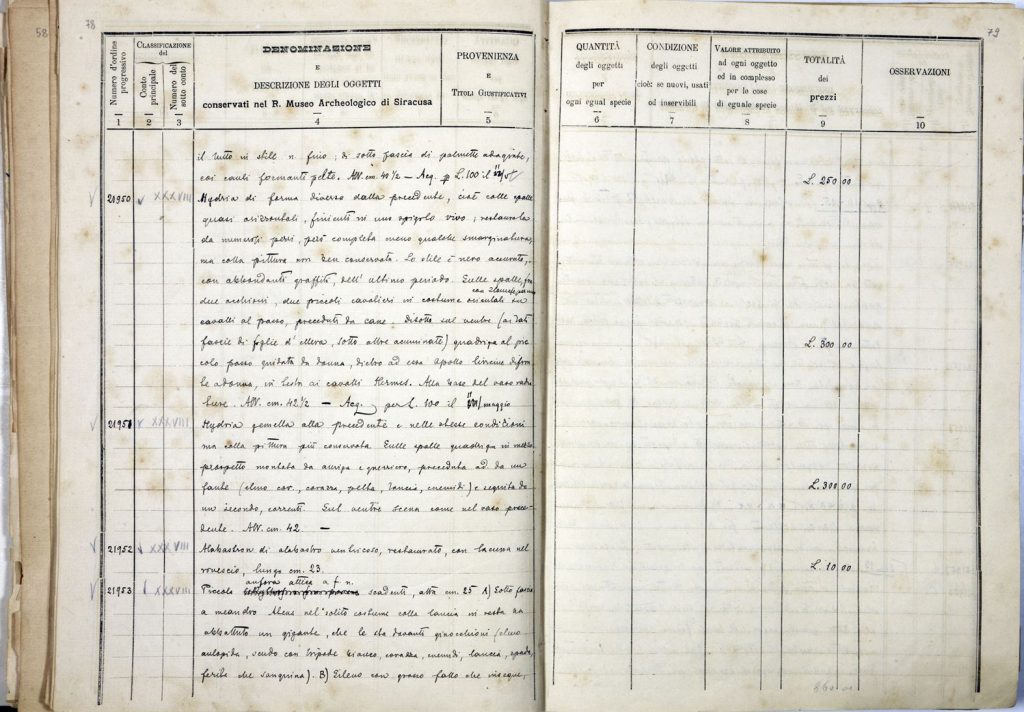 58
78
Numero d'ordine progressivo
CLASSIFICAZIONE
del
Conto principale
Numero del sotto conto
DENOMINAZIONE
E
DESCRIZIONE DEGLI OGGETTI
conservati nel R. Museo Archeologico di Siracusa
PROVENIENZA
E
TITOLI GIUSTIFICATIVI
1 2 3 4 5
il tutto in stile n. fino; di sotto fascia di palmette adagiate,
coi cauli formanti pelte. Alt. cm. 40 ½ — Acq. p L. 100 il
21950 XXXVIII Hydria di forma diversa dalla precedente, cioè colle spalle
quasi orizzontali, finienti in uno spigolo vivo; restaurata
da numerosi pezzi, però completa meno qualche smarginatura,
ma colla pittura non ben conservata. Lo stile è nero accurato,
con abbondanti graffiti, dell' ultimo periodo. Sulle spalle, fra
due occhioni, due piccoli cavalieri in costume orientale su
con 2 lance
cavalli al passo, preceduti da cane. Disotto sul ventre (ai lati
fascie di foglie d' ellera, sotto altre acuminate) quadriga al pic
colo passo guidata da donna, dietro ad essa Apollo liricine
e donna, in testa ai cavalli Hermes. Alla base del vaso
Alt. cm. 42 ½ — Acq. per L. 300 il maggio
21951 XXXVIII Hydria gemella alla precedente e nelle stesse condizioni
ma colla pittura più conservata. Sulle spalle quadriga in mezzo
prospetto montata da auriga e guerriero, preceduta ad. da un
fante (elmo cor., corazza, pelta, lancia, cnemidi) e seguita da
un secondo, correnti. Sul ventre scena come nel vaso prece-
dente. Alt. cm. 42. —
21952 XXXVIII Alabastron di alabastro ventricoso, restaurato, con lacuna nel
rovescio, lungo cm. 23.
anfora attica a f. n.
21953 XXXVIII Piccola scadenti, alta cm. 25 A) Sotto fascia
a meandro Atena nel solito costume colla lancia in resta ha
abbattuto un gigante, che le sta davanti ginocchioni (elmo
aulopide, scudo con tripode bianco, corazza, cnemidi, lancia, spada,
ferita che sanguina). B) Sileno con grosso fallo che
79
QUANTITÀ
degli oggetti
per
ogni egual specie
CONDIZIONE
degli oggetti
cioè: se nuovi, usati
od inservibili
VALORE ATTRIBUITO
ad ogni oggetto
od in complesso
per le cose
di eguale specie
TOTALITÀ
dei
prezzi
OSSERVAZIONI
6 7 8 9 10
L. 250 00
L. 300 00
L. 300 00
L. 10 00
860 00